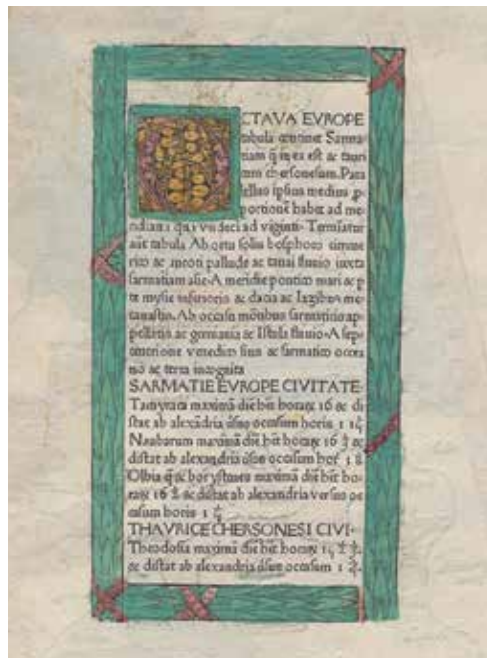 OCTAVA EVROPE
tabula continet Sarma-
tiam q̄ in ea est & tauri
cam chersonesum. Para
lellus ipsius medius p̱-
portionē habet ad me-
ridianū quā undeci ad viginti. Terminatur
aūt tabula. Ab ortu solis bosphoro cimme
rico & meoti pallude ac tanai fluuio iuxta
sarmatiam asie. A meridie pontico mari & p̱
te mysie inferioris & dacia ac Iazigibus me-
tanastis. Ab occasu mōtibus sarmaticis ap-
pellatis ac germania & Istula fluuio. A sep-
tentrione venedico sinu & sarmatico occea
no ac terra incognita
SARMATIE EVROPE CIVITATE.
Tamyraca maximā diē hēt horaꝝ 16 &
stat ab alexādria ūsus occasum horis 1
Naubarum maximā diē hēt horaꝝ 16 &
distat ab alexandria ūsus occasum hor 1
Olbia q̄ & borystenes maximā diē hēt ho-
raꝝ 16 & distat ab alexandria versus oc
casum horis 1
THAVRICE CHERSONESI CIVI.
Theodosia maximā diē hēt horaꝝ
& distat ab alexandria ūsus occasum 1